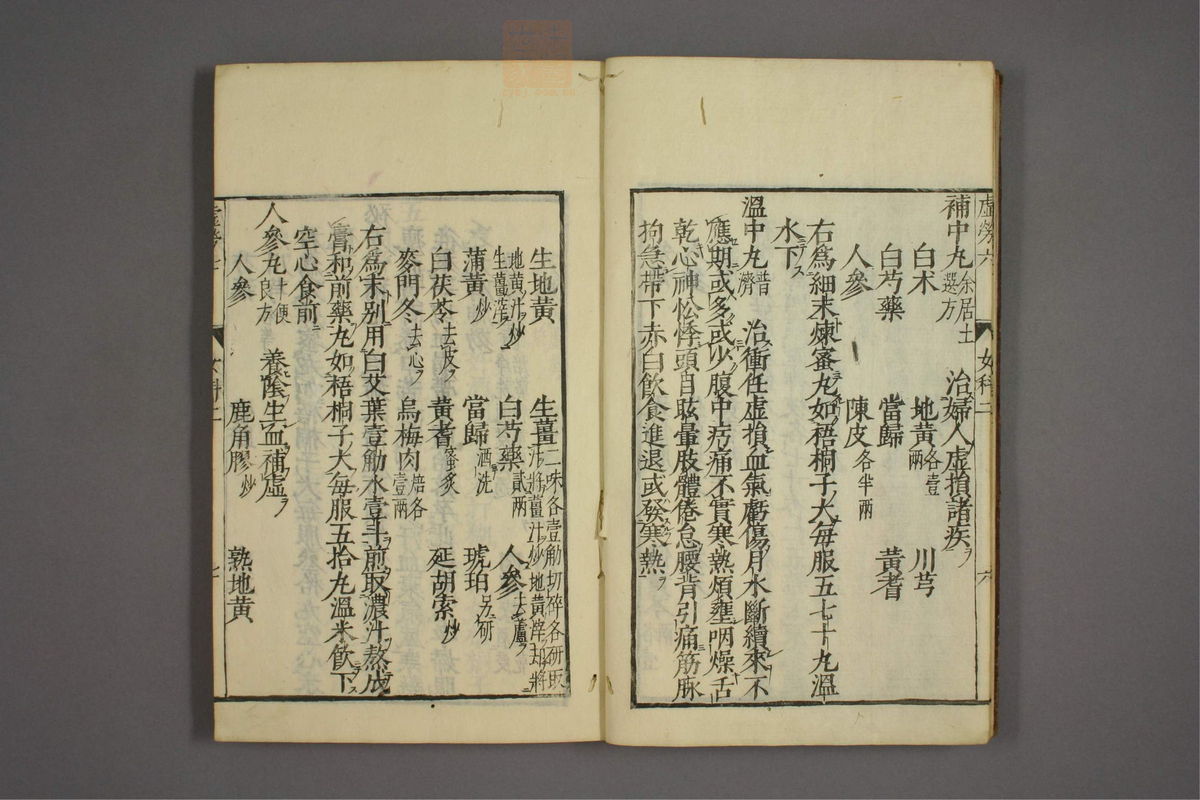 補中丸余居士選方　治婦人虛損諸疾ヲ
白朮　地黃各壹兩　川芎
白芍藥　當歸　黃耆
人參　陳皮各半兩
右爲細末煉蜜丸如梧桐子大每服五七十丸溫
水下
溫中丸普濟　治衝任虛損血氣虧傷月水斷續來不
應期或多或少腹中疞痛不實寒熱煩壅咽燥舌
乾心神忪悸頭目眩暈肢體倦怠腰背引痛筋脉
拘急帶下赤白飲食進退或發寒熱
生地黃　生薑二味各壹觔切碎各研取汁將薑汁炒地黃滓却將地黃汁炒生薑滓
白芍藥貳兩　人參去蘆
蒲黃炒　當歸酒洗　琥珀另研
白茯苓去皮　黃耆蜜炙　延胡索炒
麥門冬去心　烏梅肉焙各壹兩
右爲末別用白艾葉壹觔水壹斗煎取濃汁熬成
膏和前藥丸如梧桐子大每服五拾丸溫米飲下
空心食前
人參丸十便良方　養陰生血補虛
人參　鹿角膠炒　熟地黃
虛勞六　女科二　六
女科二　七